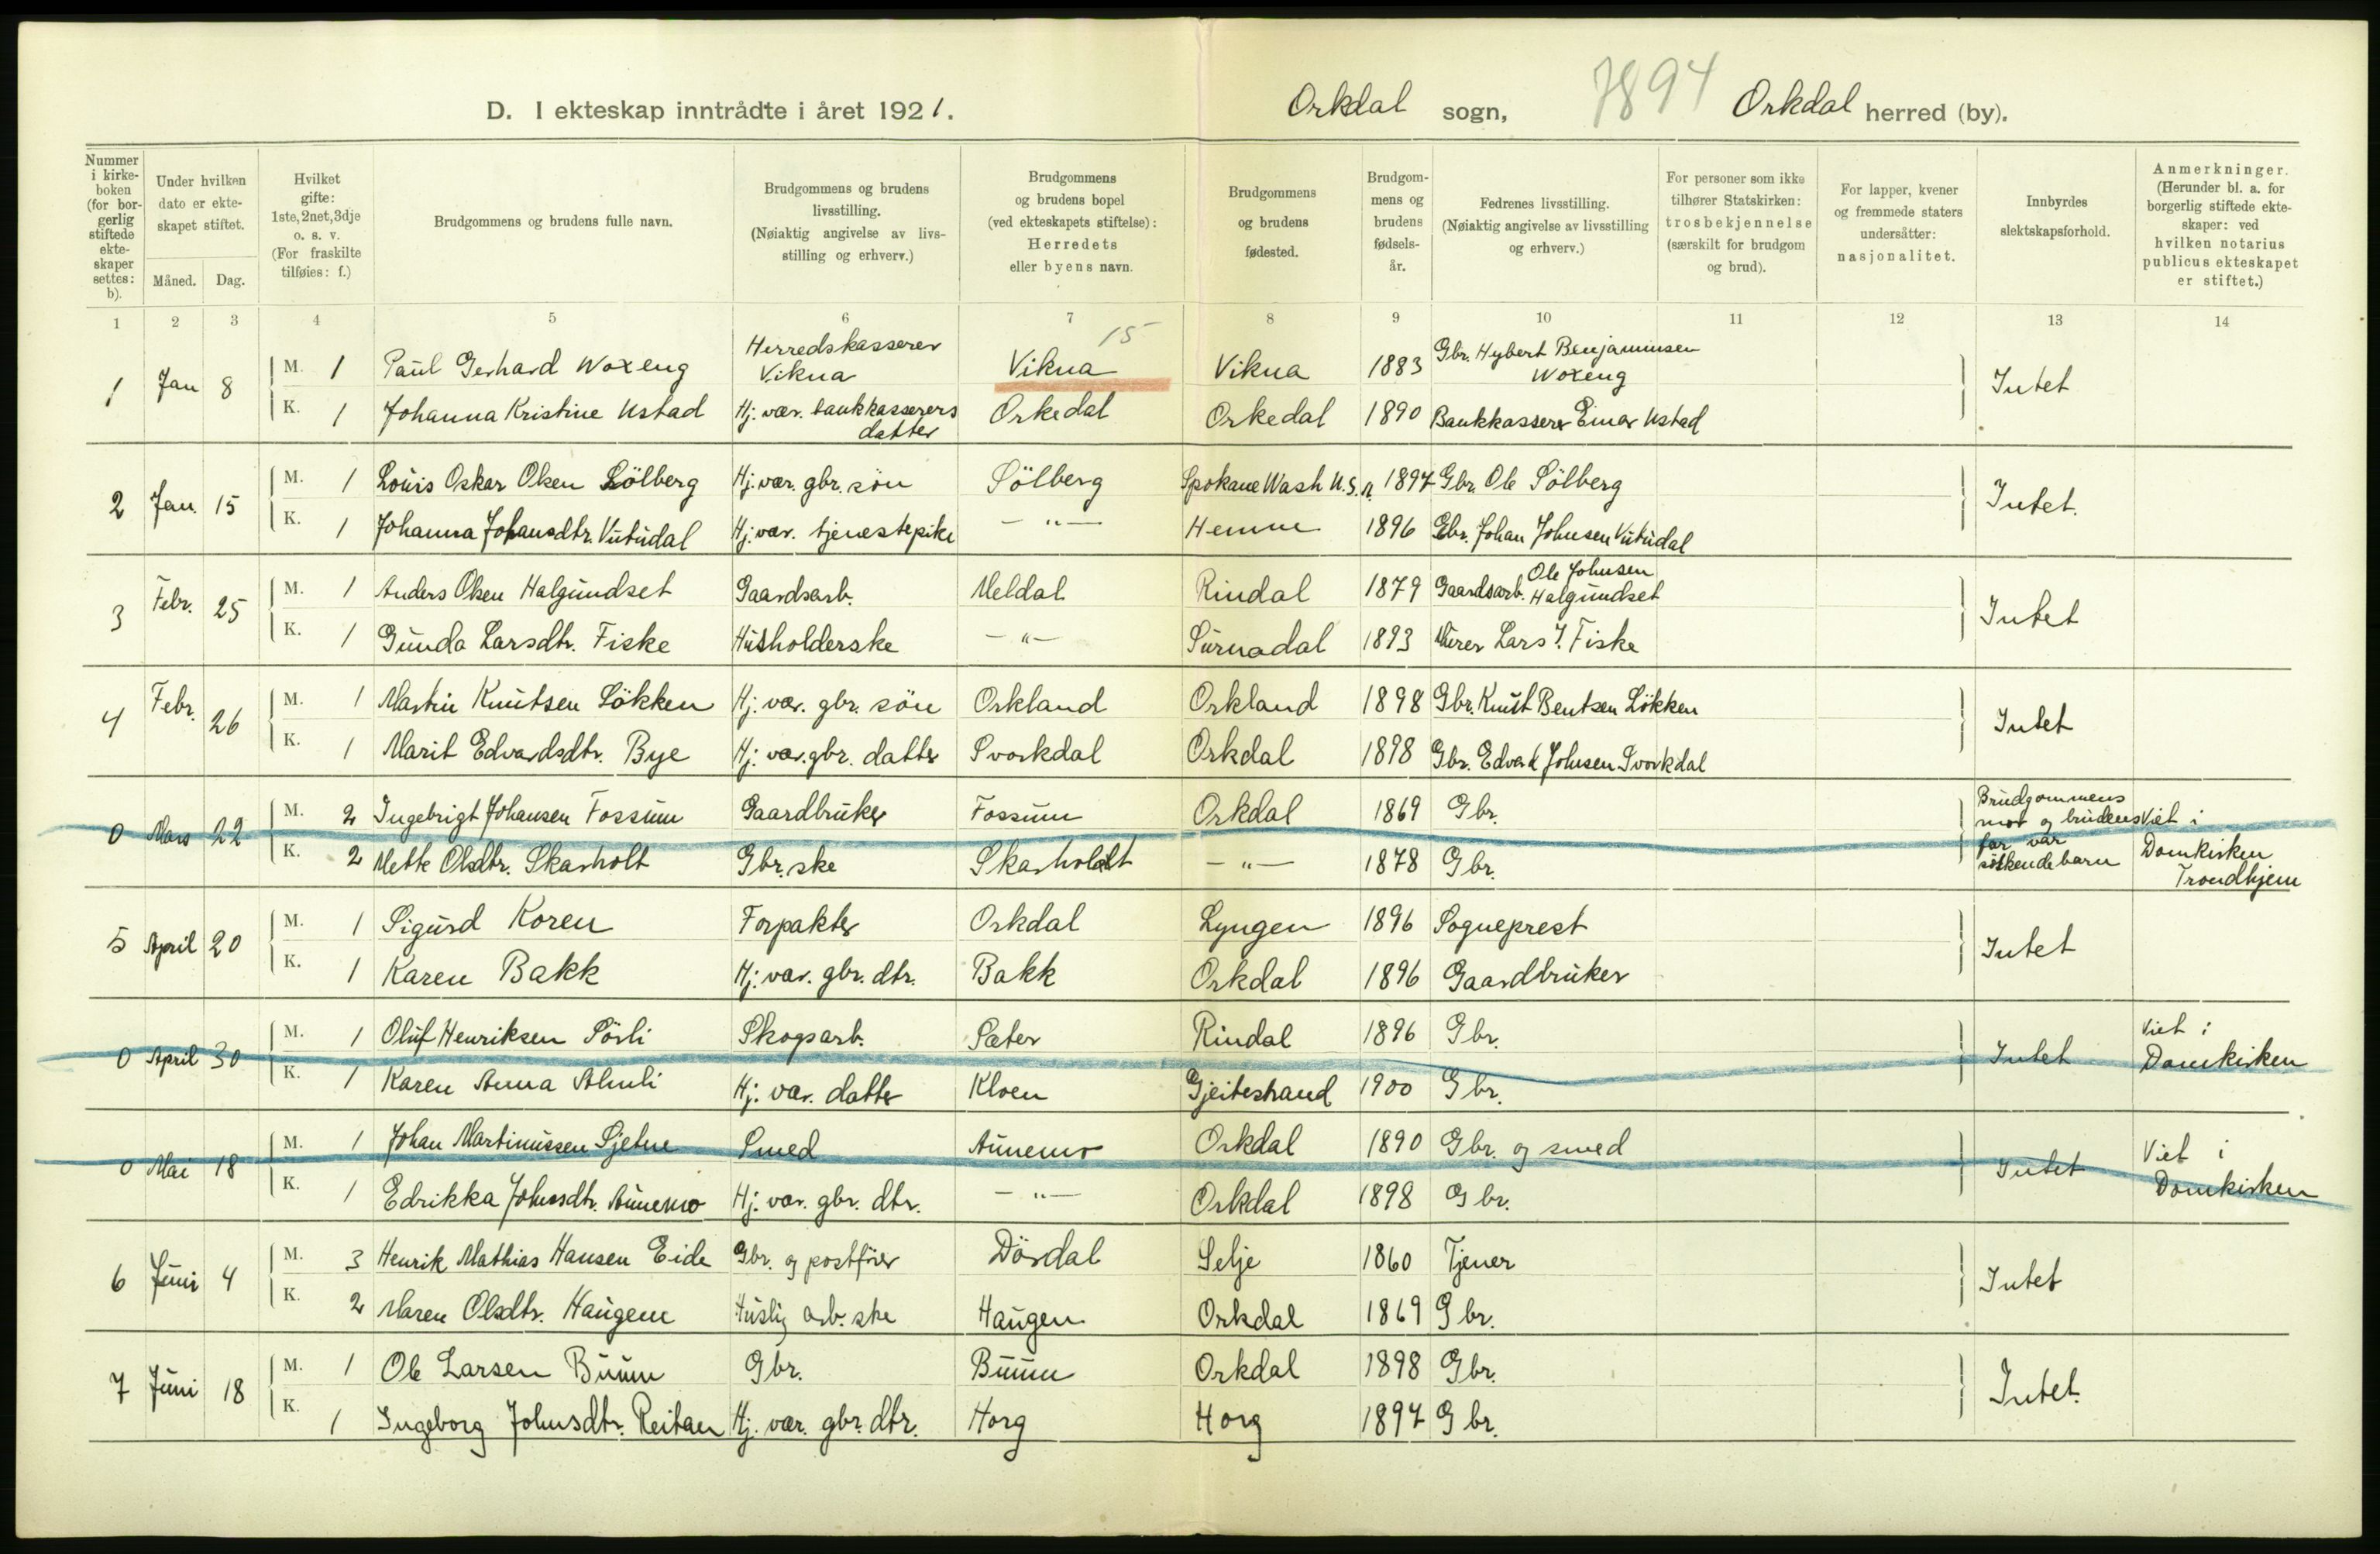 D. I ekteskap inntrådte i året 1921.
Orkdal sogn, 7894 Orkdal herred (by).
Nummer i kirke-boken (for bor-gerlig stiftede ekte-skaper settes: b).
Under hvilken dato er ekte-skapet stiftet.
Måned. Dag.
Hvilket gifte: 1ste, 2net, 3dje o. s. v. (For fraskilte tilføies: f.)
Brudgommens og brudens fulle navn.
Brudgommens og brudens livsstilling. (Nøiaktig angivelse av livs-stilling og erhverv.)
Brudgommens og brudens bopel (ved ekteskapets stiftelse): Herredets eller byens navn.
Brudgommens og brudens fødested.
Brudgom-mens og brudens fødsels-år.
Fedrenes livsstilling. (Nøiaktig angivelse av livsstilling og erhverv.)
For personer som ikke tilhører Statskirken: trosbekjennelse (særskilt for brudgom og brud).
For lapper, kvener og fremmede staters undersåtter: nasjonalitet.
Innbyrdes slektskapsforhold.
Anmerkninger. (Herunder bl. a. for borgerlig stiftede ekte-skaper: ved hvilken notarius publicus ekteskapet er stiftet.)
1 2 3 4 5 6 7 8 9 10 11 12 13 14
15
1 Jan 8 M. 1 Paul Gerhard Woxeng Herredskasserer Vikna Vikna Vikna 1883 Gbr. Hybert Benjaminsen Woxeng Intet
K. 1 Johanna Kristine Ustad Hj. vær. bankkasserers datter Orkedal Orkedal 1890 Bankkasserer Einar Ustad
2 Jan. 15 M. 1 Louis Oskar Olsen Sölberg Hj. vær. gbr. sön Sölberg Spokane Wash U.S.A. 1897 Gbr. Ole Sölberg Intet.
K. 1 Johanna Johansdtr. Vutudal Hj. vær. tjenestepike — " — Hemne 1896 Gbr. Johan Johnsen Vutudal
3 Febr. 25 M. 1 Anders Olsen Halgundset Gaardsarb. Meldal Rindal 1879 Gaardsarb. Ole Johnsen Halgundset Intet
K. 1 Gunda Larsdtr. Fiske Husholderske — " — Surnadal 1893 Murer Lars I. Fiske
4 Febr. 26 M. 1 Martin Knutsen Lökken Hj. vær. gbr. sön Orkland Orkland 1898 Gbr. Knut Bentsen Lökken Intet
K. 1 Marit Edvardsdtr. Bye Hj. vær. gbr. datter Svorkdal Orkdal 1898 Gbr. Edvard Johnsen Svorkdal
0 Mars 22 M. 2 Ingebrigt Johansen Fossum Gaardbruker Fossum Orkdal 1869 Gbr. Brudgommens mor og brudens far var söskendebarn Viet i Domkirken Trondhjem
K. 2 Mette Olsdtr. Skarholt Gbr.ske Skarholdt — " — 1878 Gbr.
5 April 20 M. 1 Sigurd Koren Forpakter Orkdal Lyngen 1896 Sogneprest Intet
K. 1 Karen Bakk Hj. vær. gbr. dtr. Bakk Orkdal 1896 Gaardbruker
0 April 30 M. 1 Oluf Henriksen Sörli Skogsarb. Sæter Rindal 1896 Gbr. Intet Viet i Domkirken
K. 1 Karen Anna Almli Hj. vær. datter Kloen Gjeitestrand 1900 Gbr.
0 Mai 18 M. 1 Johan Martinussen Sjetne Smed Aunemo Orkdal 1890 Gbr. og smed Intet Viet i Domkirken
K. 1 Edrikka Johnsdtr. Aunemo Hj. vær. gbr. dtr. — " — Orkdal 1898 Gbr.
6 Juni 4 M. 3 Henrik Mathias Hansen Eide Gbr. og postförer Dördal Selje 1860 Tjener Intet
K. 2 Maren Olsdtr. Haugen Huslig arb.ske Haugen Orkdal 1869 Gbr.
7 Juni 18 M. 1 Ole Larsen Buum Gbr. Buum Orkdal 1898 Gbr. Intet.
K. 1 Ingeborg Johnsdtr. Reitaen Hj. vær. gbr. dtr. Horg Horg 1897 Gbr.